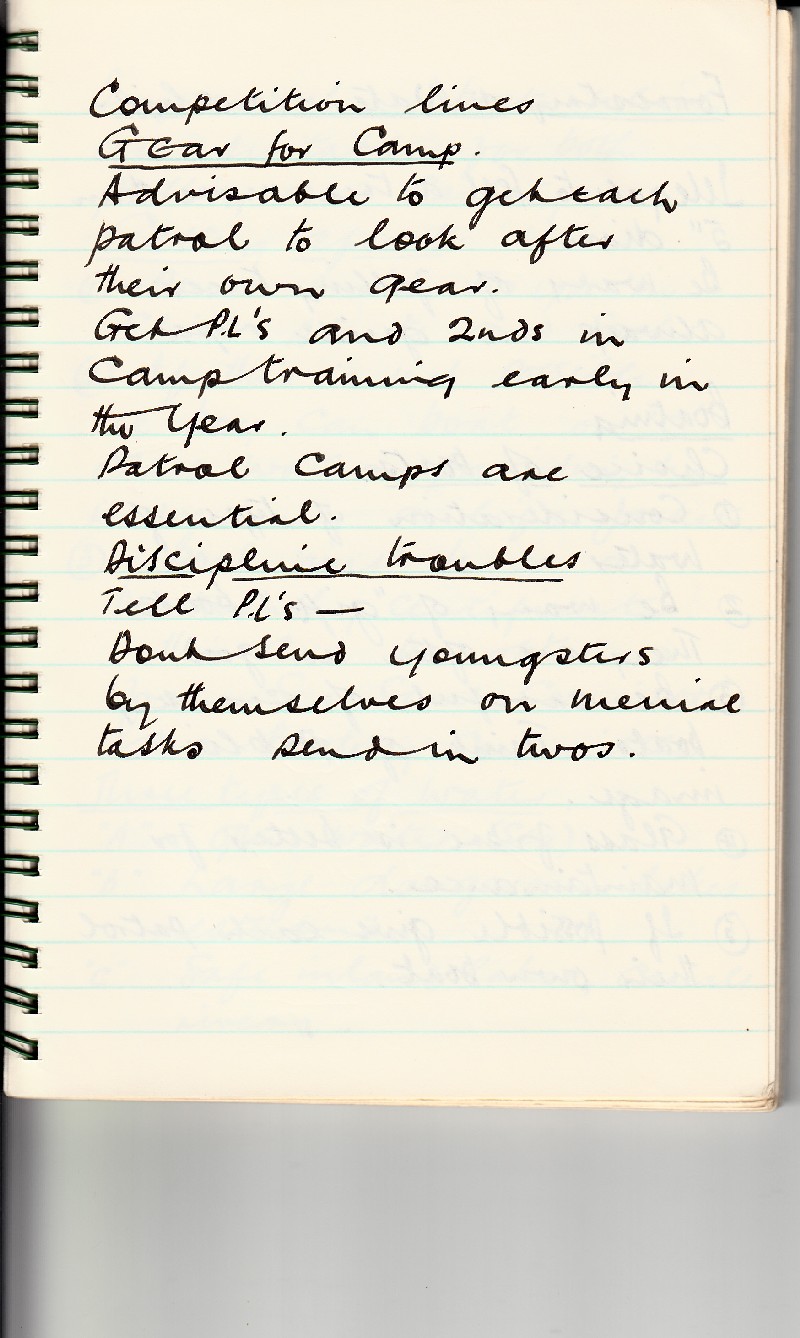 Competition lines
Gear for Camp.
Advisable to get each
patrol to look after
their own gear.
Get P.L's and 2nds in
Camp training early in
the Year.
Patrol Camps are
essential.
Discipline troubles
Tell P.L's —
Dont send youngsters
by themselves on menial
tasks send in twos.